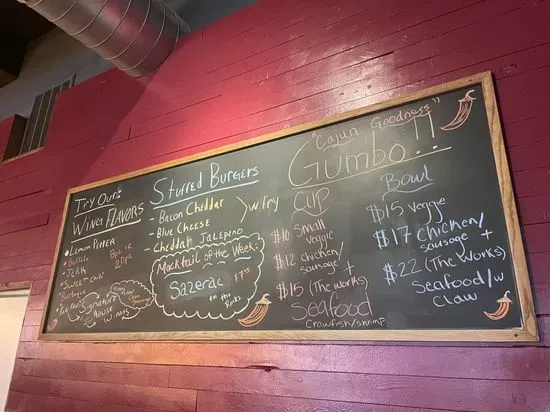 Try Our:
Wing Flavors
Lemon Pepper
Buffalo
Jerk
Sweet Chili
Barbque
Signature
House
Wings
6pc 12
Stuffed Burgers
- Bacon Cheddar
- Blue Cheese
- Cheddar Jalepeno
w/ Fry
Mocktail of the Week:
Sazerac $7.50
on the
Rocks
"Cajun Goodness"
Gumbo!!
Cup
$10 Small
Veggie
$12 chicken/
sausage +
$15 (the works)
Seafood
Crawfish/shrimp
Bowl
$15 Veggie
$17 chicken/
sausage +
$22 (The Works)
Seafood/w
claw